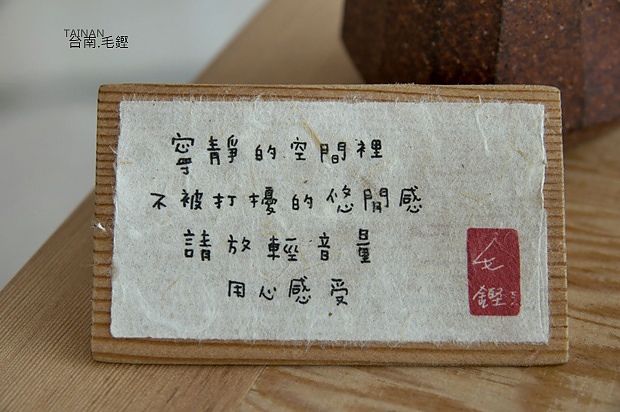 TAINAN
台南.毛鏗
寧靜的空間裡
不被打擾的悠閒感
請放輕音量
用心感受
毛
鏗